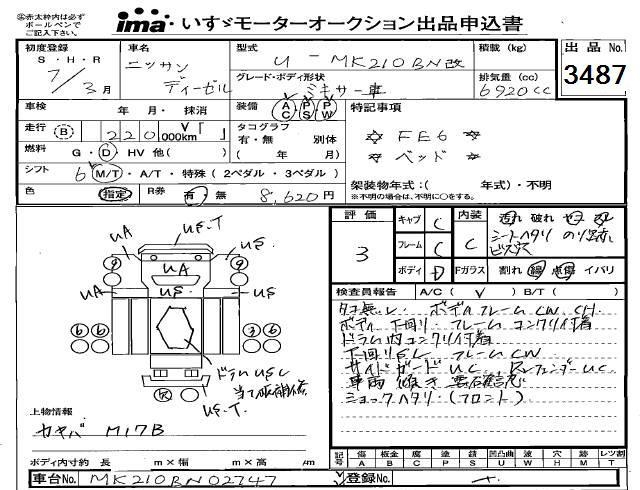 ④赤太枠内は必ず
ボールペンで
ご記入下さい。
ima いすゞモーターオークション出品申込書
初度登録
S・H・R
7/3月
車名
ニッサン
ディーゼル
型式
U-MK210BN改
グレード・ボディ形状
ミキサー車
積載 (kg)
排気量 (cc)
6920cc
出品No.
3487
車検 年 月・抹消
装備 AC PS PW
特記事項
走行 B 220 000km
タコグラフ
有・無 別体
( 年 月)
☆ FE6 ☆
☆ ベッド ☆
燃料 G・D・HV 他( )
シフト 6 M/T・A/T・特殊 (2ペダル・3ペダル)
架装物年式:( 年式)・不明
※不明の場合は、不明に○をする。
色 指定 R券 有 無 8,620円
評価
3
キャブ C
フレーム C
ボディ D
内装 C
Fガラス
シートヘタリ
ビス穴
割れ 線 点傷 イバリ
検査員報告 A/C ( V ) B/T ( )
タコ無し ボディフレームCW CH
ボディ下回り フレームコンクリ付着
ドラム内コンクリ付着
下回りSし フレームCW
サイドガードUC RフェンダーUC
ショックヘタリ (フロント)
uA
us.T
us
uA
uA
us
us
9
9
6
6
ドラムUSC
us.T
上物情報
カヤバ M17B
ボディ内寸約 長 m×幅 m×高 m/m
記号 傷A 板金B 腐C 塗P 錆S 凹凸曲U 波W 穴H 跡M レツ割T
車台No. MK210BN02747
登録No.